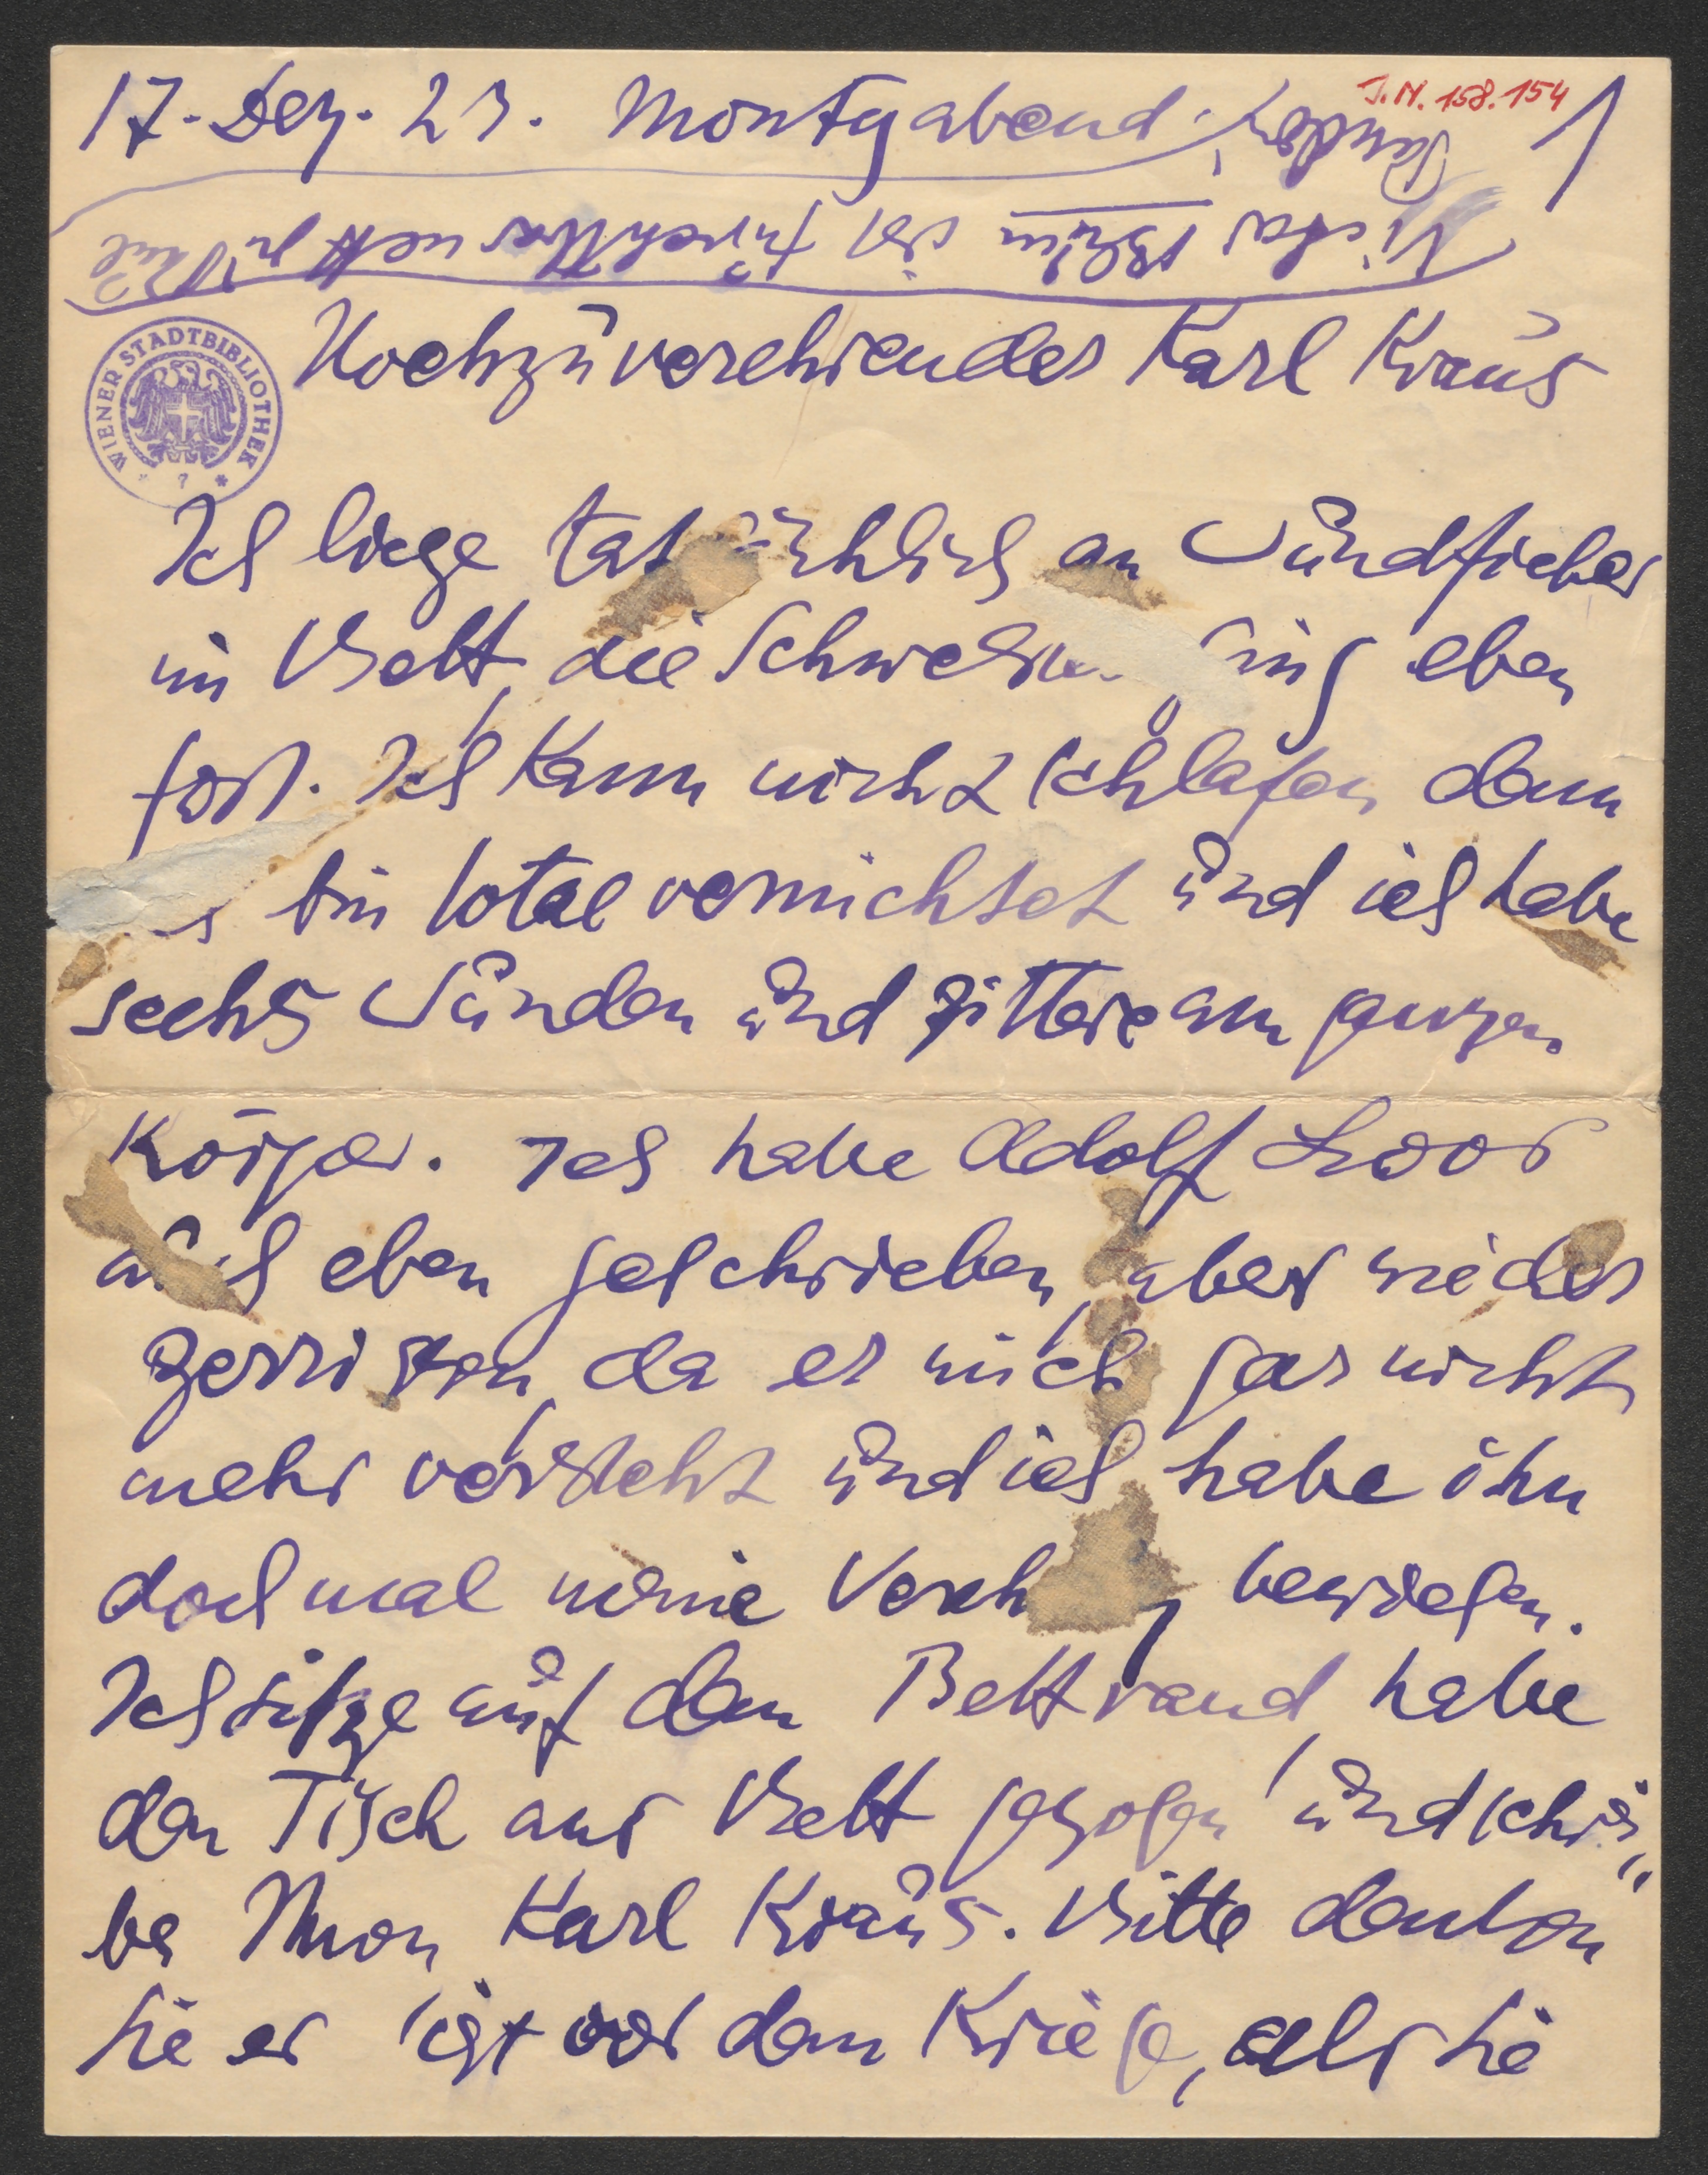 17. Dez. 23. Montagabend.
J.N. 158.154
1
Victor Blum ist fürchtbar nett zu Paul
WIENER STADTBIBLIOTHEK
Hochzuverehrender Karl Kraus
Ich liege tatsächlich an Wundfieber
im Bett, die Schwester ging eben
fort. Ich kann nicht schlafen, denn
bin total vernichtet und ich habe
sechs Wunden und zittere am ganzen
Körper. Ich habe Adolf Loos
auch eben geschrieben, aber wieder
zerrissen, da er mich gar nicht
mehr versteht und ich habe ihm
doch mal meine Verehrung bewiesen.
Ich sitze auf dem Bettrand, habe
den Tisch ans Bett gezogen und schrei„
be Ihnen Karl Kraus. Bitte denken
Sie es ist vor dem Kriege, als Sie